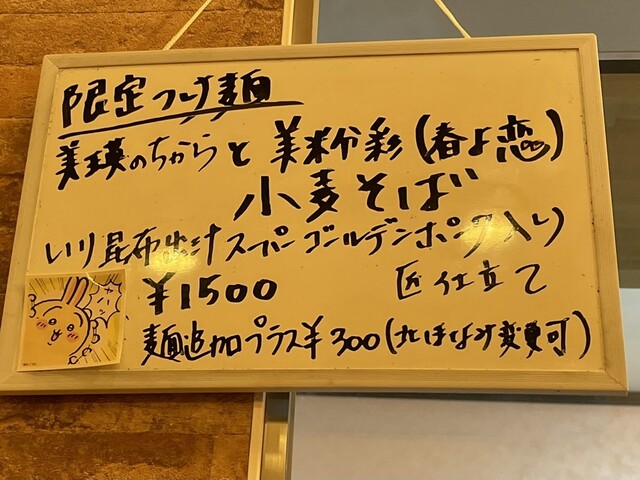 限定つけ麺
美瑛のちからと美粉彩(春よ恋)
小麦そば
いり昆布出汁スーパーゴールデンポーク入り
匠仕立て
¥1500
麺追加プラス¥300(たほなみ変更可)